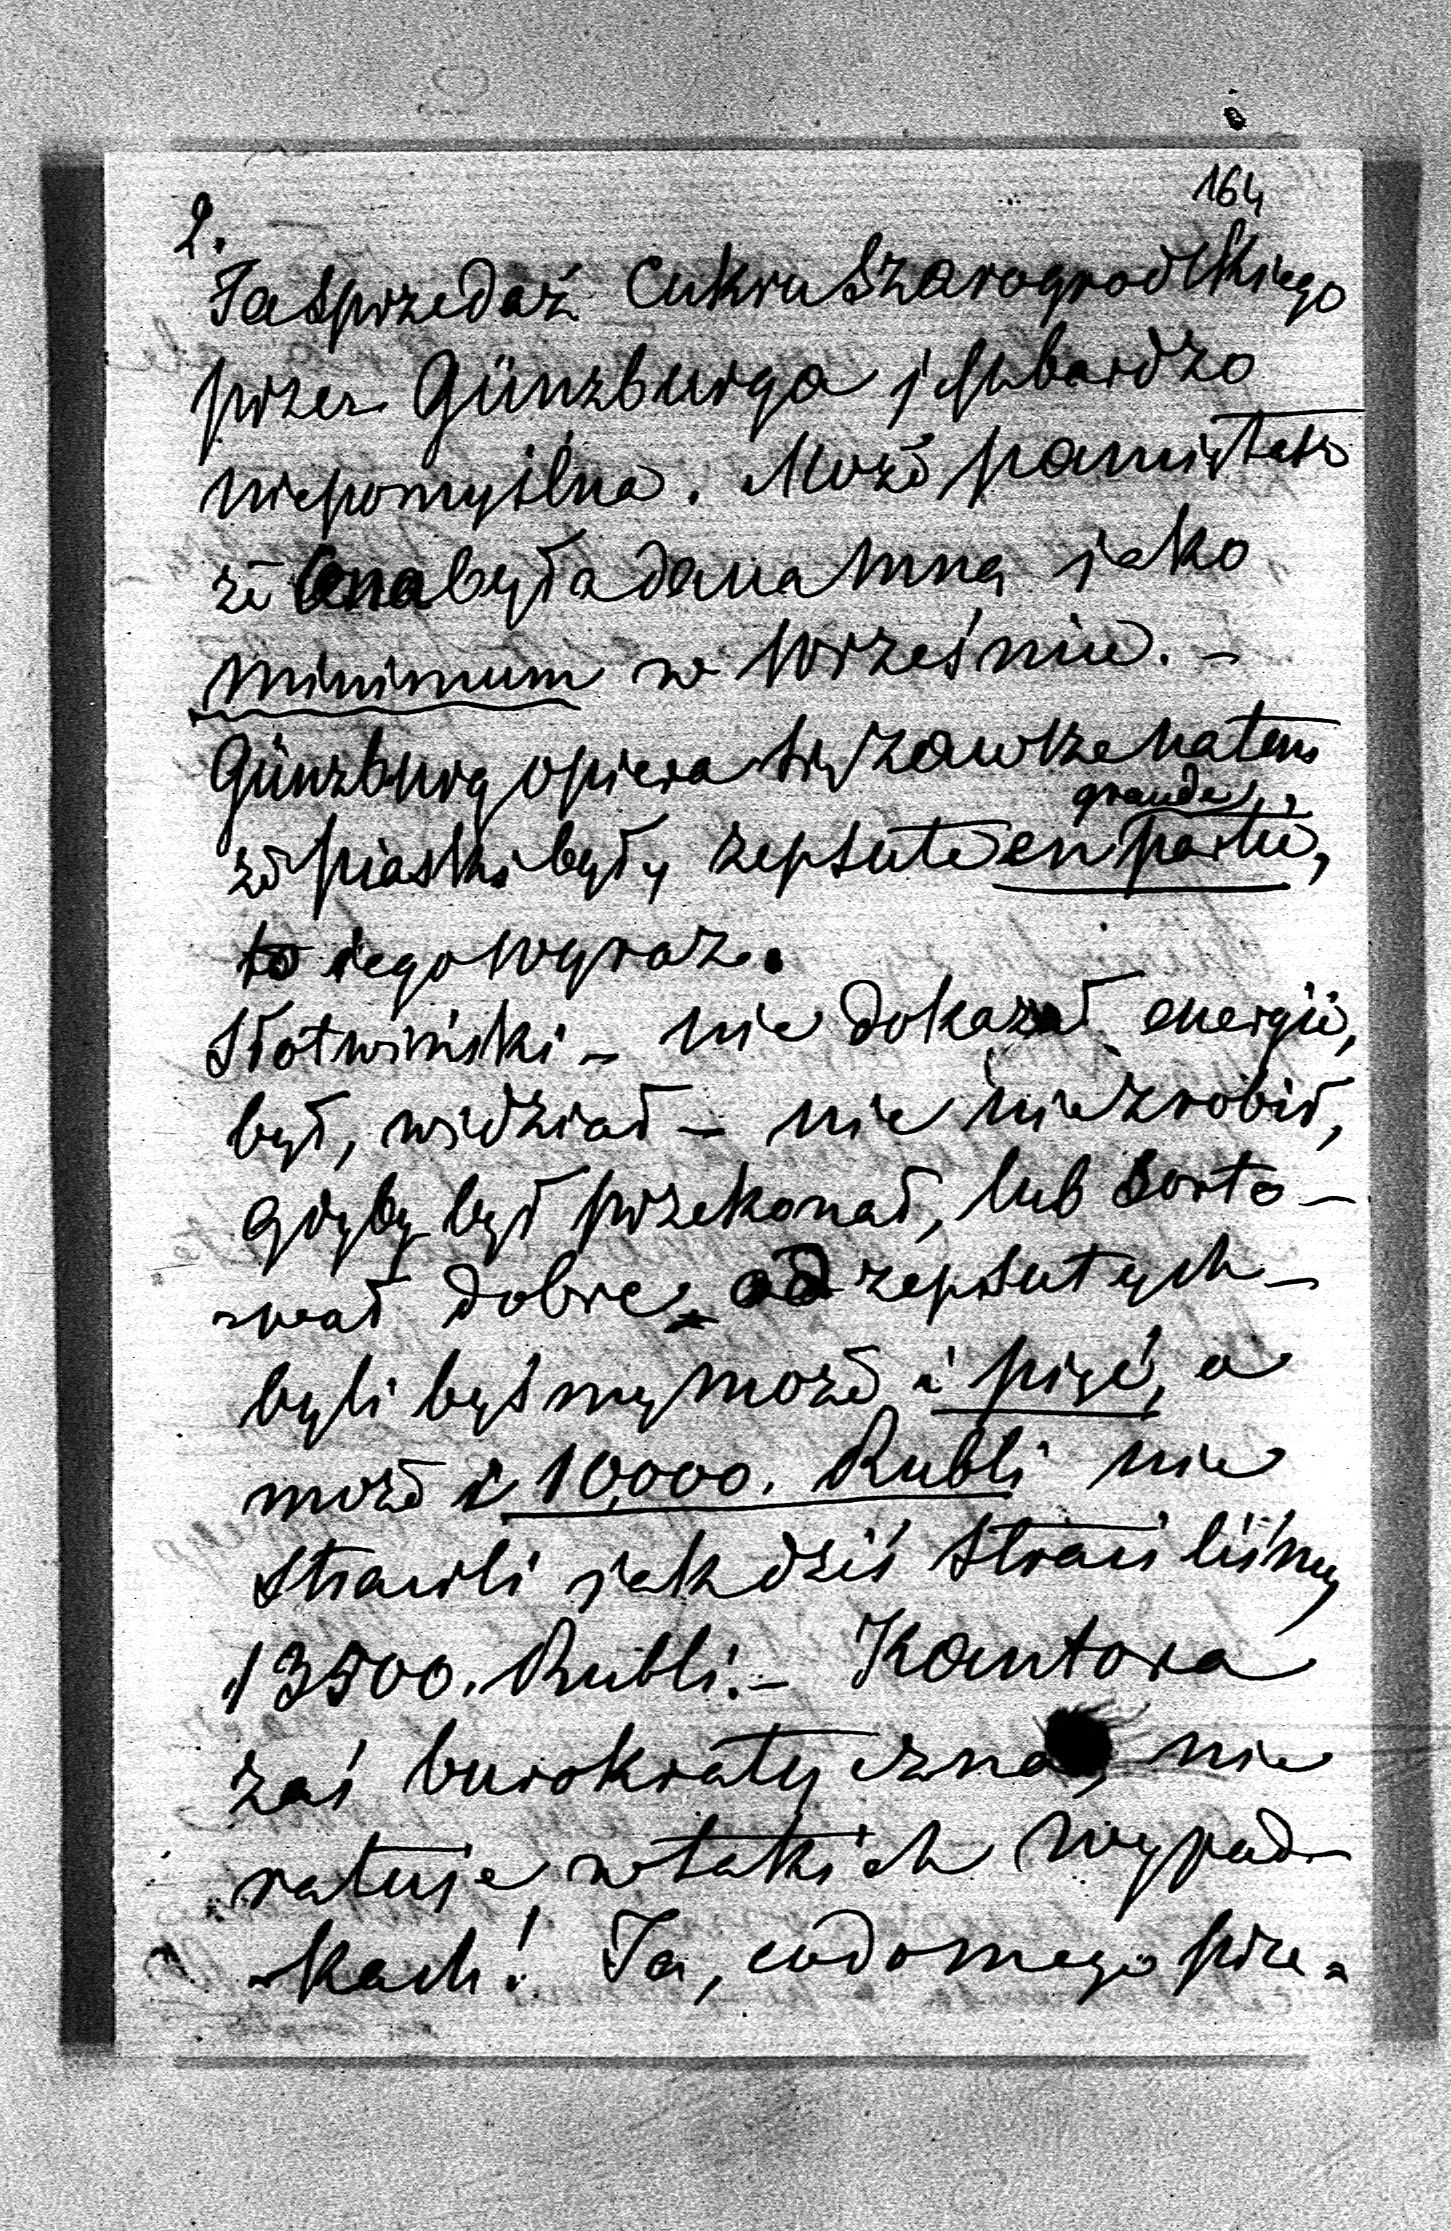 164
2.
Ta sprzedaż Cukru Szarogrodzkiego
przez Günzburga jest bardzo
niepomyślna. Może pamiętasz
że ona była dana mną jako
minimum w Wrześniu. –
Günzburg opiera się zawsze na tem
że piaski były zepsute en grande partie,
to iego wyraz.
Słotwiński – nie dokazał energii,
był, widział – nic nie zrobił,
gdyby był przekonał, lub sorto-
-wał dobre od zepsutych –
byli byśmy może i pięć, a
może i 10,000. Rubli nie
stracili jak dziś straciliśmy
13500. Rubli. – Kantora
zaś burokratyczna, nie
ratuje w takich wypad-
-kach! Ja, co do mego prze-